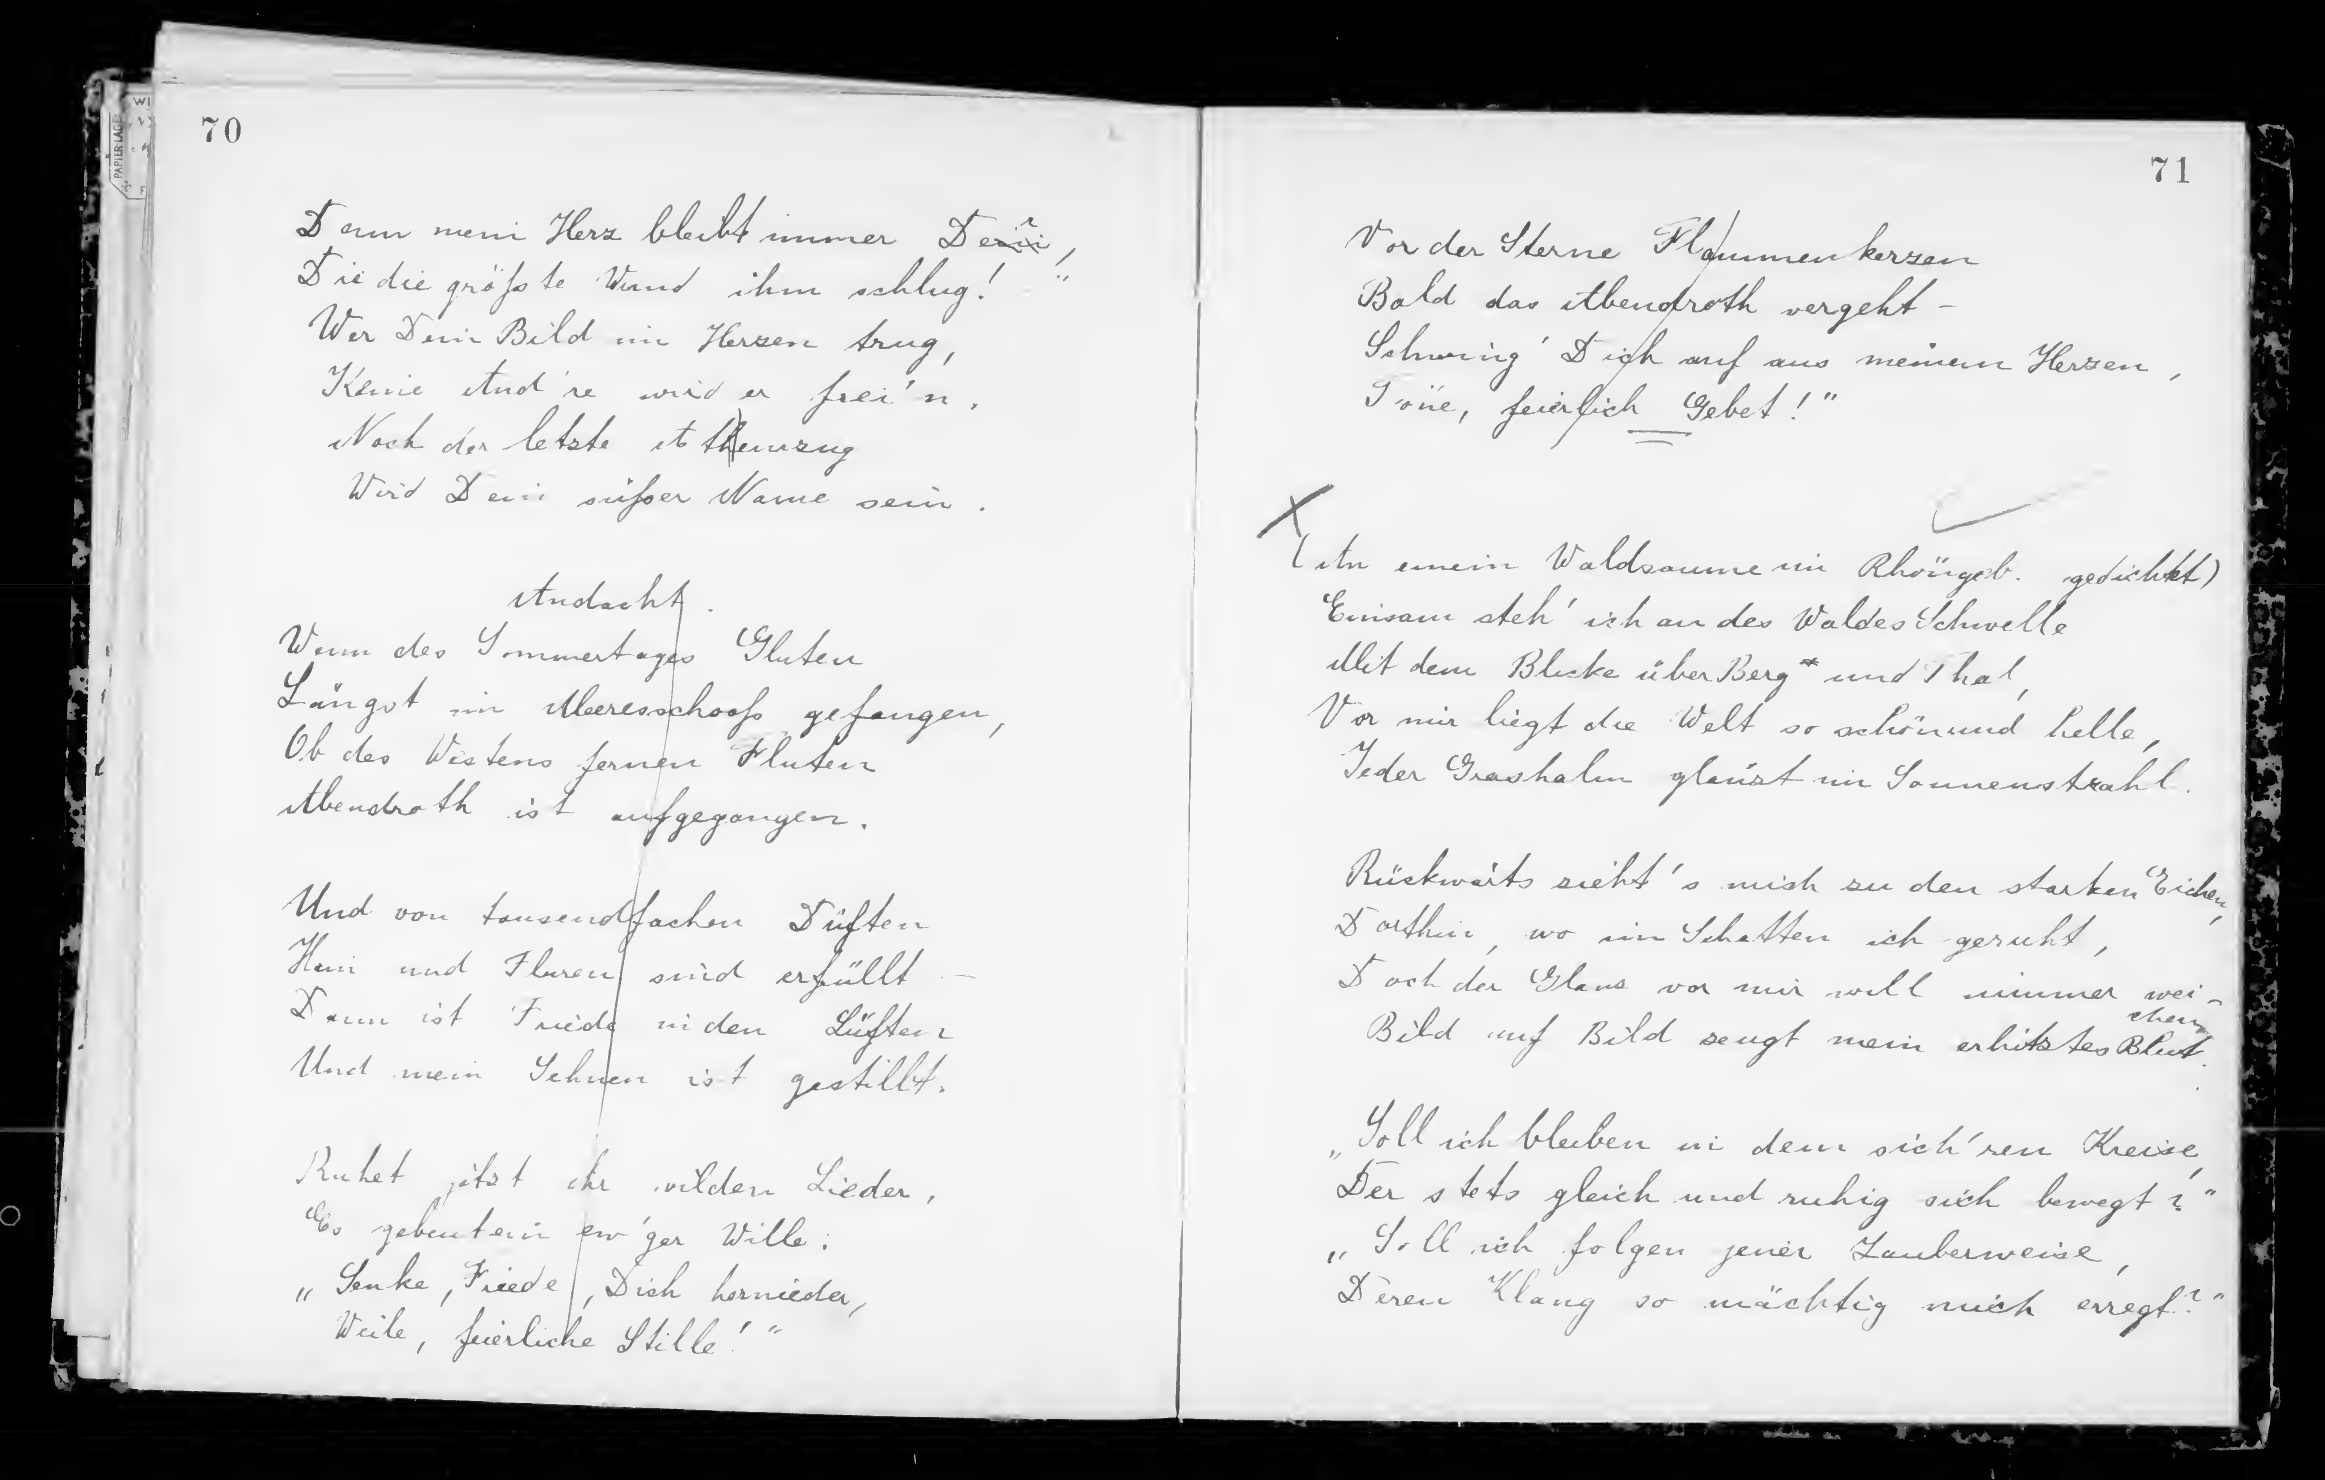 70
Denn mein Herz bleibt immer Dein,
Die die größte Wund ihm schlug!"
Wer Dein Bild im Herzen trug,
Keine And're wird er frei'n.
Noch der letzte Athemzug
Wird Dein süßer Name sein.
Andacht.
Wenn des Sommertages Gluten
Längst im Meeresschooß gefangen,
Ob des Westens fernen Fluten
Abendroth ist aufgegangen.
Und von tausendfachen Düften
Hain und Fluren sind erfüllt –
Dann ist Friede in den Lüften
Und mein Sehnen ist gestillt.
Ruhet jetzt ihr wilden Lieder,
Es gebeut ein ew'ger Wille:
„Senke, Friede, Dich hernieder,
Weile, feierliche Stille!"
71
Vor der Sterne Flammenkerzen
Bald das Abendroth vergeht –
Schwing' Dich auf aus meinem Herzen,
Töne, feierlich Gebet!"
(An einem Waldsaume im Rhöngeb. gedichtet)
Einsam steh' ich an des Waldes Schwelle
Mit dem Blicke über Berg und Thal,
Vor mir liegt die Welt so schön und helle,
Jeder Grashalm glänzt im Sonnenstrahl.
Rückwärts zieht's mich zu den starken Eichen,
Dorthin, wo im Schatten ich geruht,
Doch der Glanz vor mir will nimmer wei-
chen,
Bild auf Bild zeugt mein erhitztes Blut.
„Soll ich bleiben in dem sich'ren Kreise,
Der stets gleich und ruhig sich bewegt?"
„Soll ich folgen jener Zauberweise,
Deren Klang so mächtig mich erregt?"